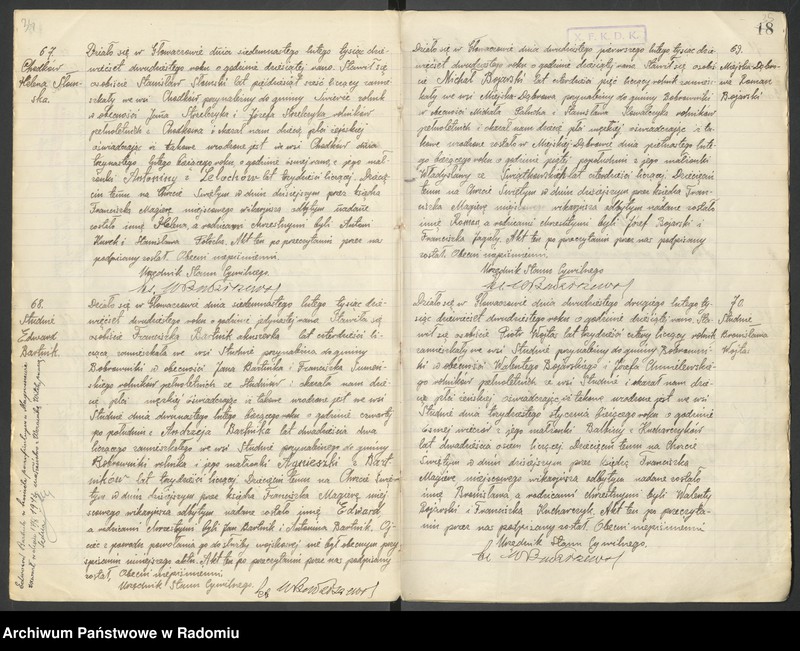 67.
Chodków
Helena Słom-
ska.
Działo się w Głowaczowie dnia siedemnastego lutego tysiąc dzie-
więćset dwudziestego roku o godzinie dziesiątej rano. Stawił się
osobiście Stanisław Słomski lat pięćdziesiąt sześć liczący zamie-
szkały we wsi Chodków przynależnej do gminy rolnik
w obecności Jana Strzelczyka i Józefa Strzelczyka rolników
pełnoletnich z Chodkowa i okazał nam dziecię płci żeńskiej
oświadczając iż takowe urodzone jest we wsi Chodków dnia
lutego bieżącego roku o godzinie ósmej rano z jego mał-
żonki Antoniny z Lelochów lat trzydzieści liczącej. Dziecię-
ciu temu na Chrzcie Świętym w dniu dzisiejszym przez księdza
Franciszka Magierę miejscowego wikarjusza odbytym nadane
zostało imię Helena, a rodzicami chrzestnymi byli Antoni
Kurek i Stanisława Akt ten po przeczytaniu przez nas
podpisany został. Obecni niepiśmienni.
Urzędnik Stanu Cywilnego.
ks.
68.
Studnie
Edward
Bartnik.
Działo się w Głowaczowie dnia siedemnastego lutego tysiąc dzie-
więćset dwudziestego roku o godzinie jedynastej rano. Stawiła się
osobiście Franciszka Bartnik akuszerka lat czterdzieści li-
cząca, zamieszkała we wsi Studnie przynależnej do gminy
Bobrowniki w obecności Jana Bartnika i Franciszka
rolników pełnoletnich ze Studni i okazała nam dzie-
cię płci męskiej oświadczając iż takowe urodzone jest we wsi
Studnie dnia dwunastego lutego bieżącego roku o godzinie czwartej
po południu z Andrzeja Bartnika lat dwadzieścia dwa
liczącego zamieszkałego we wsi Studnie przynależnej do gminy
Bobrowniki rolnika i jego małżonki Agnieszki z Bart-
ników lat trzydzieści liczącej. Dziecięciu temu na Chrzcie Świę-
tym w dniu dzisiejszym przez księdza Franciszka Magierę miej-
scowego wikarjusza odbytym nadane zostało imię Edward
a rodzicami chrzestnymi byli Jan Bartnik i Antonina Bartnik. Oj-
ciec z powodu powołania go do służby wojskowej nie był obecnym przy
spisaniu niniejszego aktu. Akt ten po przeczytaniu przez nas podpisany
został. Obecni niepiśmienni.
Urzędnik Stanu Cywilnego.
ks.
X. F. K. D. K.
18
69.
Majska-Dąbro-
wa Roman
Bojarski
Działo się w Głowaczowie dnia dwudziestego pierwszego lutego tysiąc dzie-
więćset dwudziestego roku o godzinie dziesiątej rano Stawił się osobi-
ście Michał Bojarski lat czterdzieści pięć liczący rolnik zamiesz-
kały we wsi Majska-Dąbrowa przynależnej do gminy Bobrowniki
w obecności Michała i Stanisława rolników
pełnoletnich i okazał nam dziecię płci męskiej oświadczając iż ta-
kowe urodzone zostało w Majskiej-Dąbrowie dnia piętnastego lute-
go bieżącego roku o godzinie piątej popołudniu z jego małżonki
Władysławy ze Świątkowskich lat czterdzieści liczącej. Dziecięciu
temu na Chrzcie Świętym w dniu dzisiejszym przez księdza Fran-
ciszka Magierę miejscowego wikarjusza odbytym nadane zostało
imię Roman, a rodzicami chrzestnymi byli Józef Bojarski i
Franciszka Akt ten po przeczytaniu przez nas podpisany
został. Obecni niepiśmienni.
Urzędnik Stanu Cywilnego
ks.
70.
Studnie
Bronisława
Wojtas
Działo się w Głowaczowie dnia dwudziestego drugiego lutego ty-
siąc dziewięćset dwudziestego roku o godzinie dziesiątej rano. Sta-
wił się osobiście Piotr Wojtas lat trzydzieści cztery liczący rolnik
zamieszkały we wsi Studnie przynależnej do gminy Bobrowni-
ki w obecności Walentego Bojarskiego i Józefa Chmielewskie-
go rolników pełnoletnich ze wsi Studnie i okazał nam dzie-
cię płci żeńskiej oświadczając iż takowe urodzone jest we wsi
Studnie dnia trzydziestego stycznia bieżącego roku o godzinie
ósmej wieczór z jego małżonki Balbiny z Kucharczyków
lat dwadzieścia osiem liczącej. Dziecięciu temu na Chrzcie
Świętym w dniu dzisiejszym przez księdza Franciszka
Magierę miejscowego wikarjusza odbytym nadane zostało
imię Bronisława a rodzicami chrzestnymi byli Walenty
Bojarski i Franciszka Kucharczyk. Akt ten po przeczyta-
niu przez nas podpisany został. Obecni niepiśmienni
Urzędnik Stanu Cywilnego.
ks.
Archiwum Państwowe w Radomiu